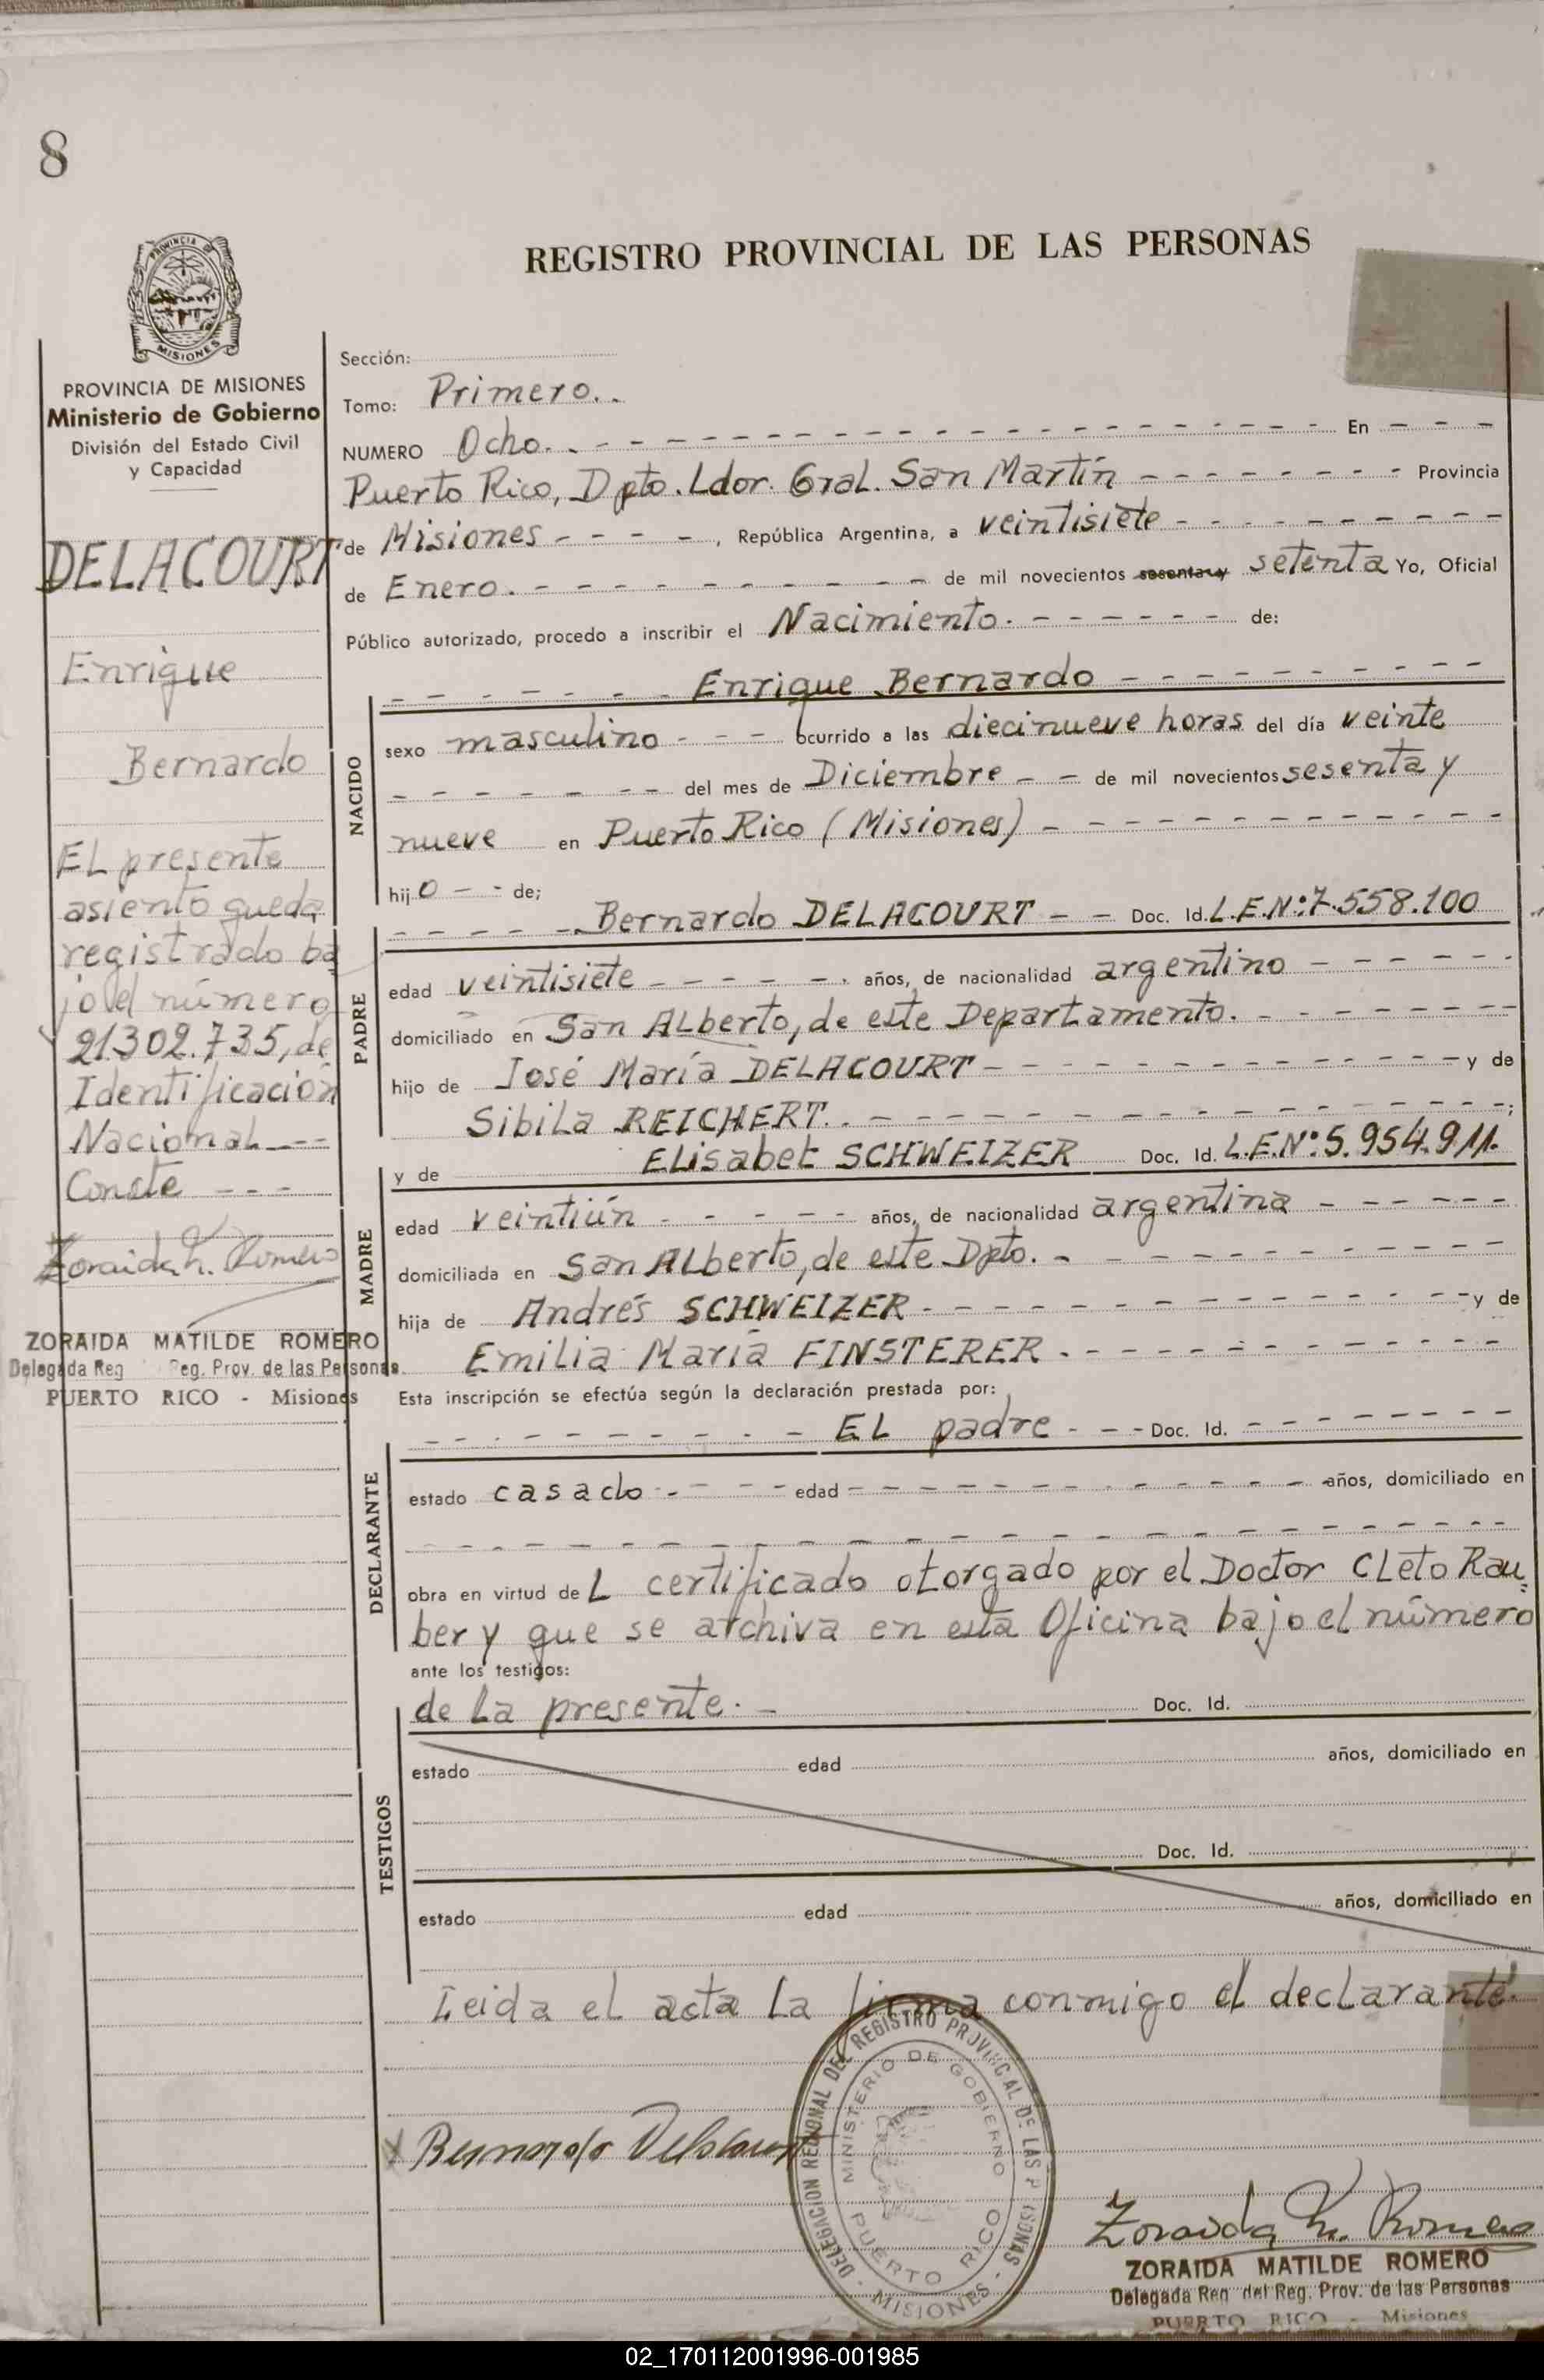 8
REGISTRO PROVINCIAL DE LAS PERSONAS
PROVINCIA DE
MISIONES
PROVINCIA DE MISIONES
Ministerio de Gobierno
División del Estado Civil
y Capacidad
DELACOURT
Enrique
Bernardo
EL presente
asiento queda
registrado ba
jo el número
21.302.735, de
Identificación
Nacional - - -
Conste - - -
Zoraida M. Romero
ZORAIDA MATILDE ROMERO
Delegada Reg Reg. Prov. de las Personas
PUERTO RICO - Misiones
Sección:
Tomo: Primero..
NUMERO Ocho. - - - En - - -
Puerto Rico, Dpto. Ldor. Gral. San Martín - - - Provincia
de Misiones - - - , República Argentina, a veintisiete - - -
de Enero. - - - de mil novecientos sesenta y setenta Yo, Oficial
Público autorizado, procedo a inscribir el Nacimiento. - - - de:
- - - Enrique Bernardo - - -
NACIDO
sexo masculino - - - ocurrido a las diecinueve horas del día veinte
- - - del mes de Diciembre - - de mil novecientos sesenta y
nueve en Puerto Rico (Misiones) - - -
hijo - - de;
- - - Bernardo DELACOURT - - Doc. Id. L.E.Nº:7.558.100
PADRE
edad veintisiete - - - años, de nacionalidad argentino - - -
domiciliado en San ALberto, de este Departamento. - - -
hijo de José María DELACOURT - - - y de
Sibila REICHERT. - - - ;
y de ELisabet SCHWEIZER Doc. Id. L.E.Nº:5.954.911.
MADRE
edad veintiún - - - años, de nacionalidad argentina - - -
domiciliada en San ALberto, de este Dpto. - - -
hija de Andrés SCHWEIZER - - - y de
Emilia María FINSTERER. - - -
Esta inscripción se efectúa según la declaración prestada por:
- - - EL padre - - - Doc. Id. - - -
DECLARANTE
estado casado - - - edad - - - años, domiciliado en
- - -
obra en virtud deL certificado otorgado por el Doctor CLeto Rau=
ber y que se archiva en esta Oficina bajo el número
ante los testigos:
de La presente. - Doc. Id.
TESTIGOS
estado edad años, domiciliado en
Doc. Id.
estado edad años, domiciliado en
Leida el acta La firma conmigo el declarante.
DELEGACION REGIONAL DEL REGISTRO PROVINCIAL DE LAS PERSONAS - MISIONES -
MINISTERIO DE GOBIERNO
PUERTO RICO
X Bernardo Delacourt
Zoraida M. Romero
ZORAIDA MATILDE ROMERO
Delegada Reg del Reg. Prov. de las Personas
PUERTO RICO - Misiones
02_170112001996-001985